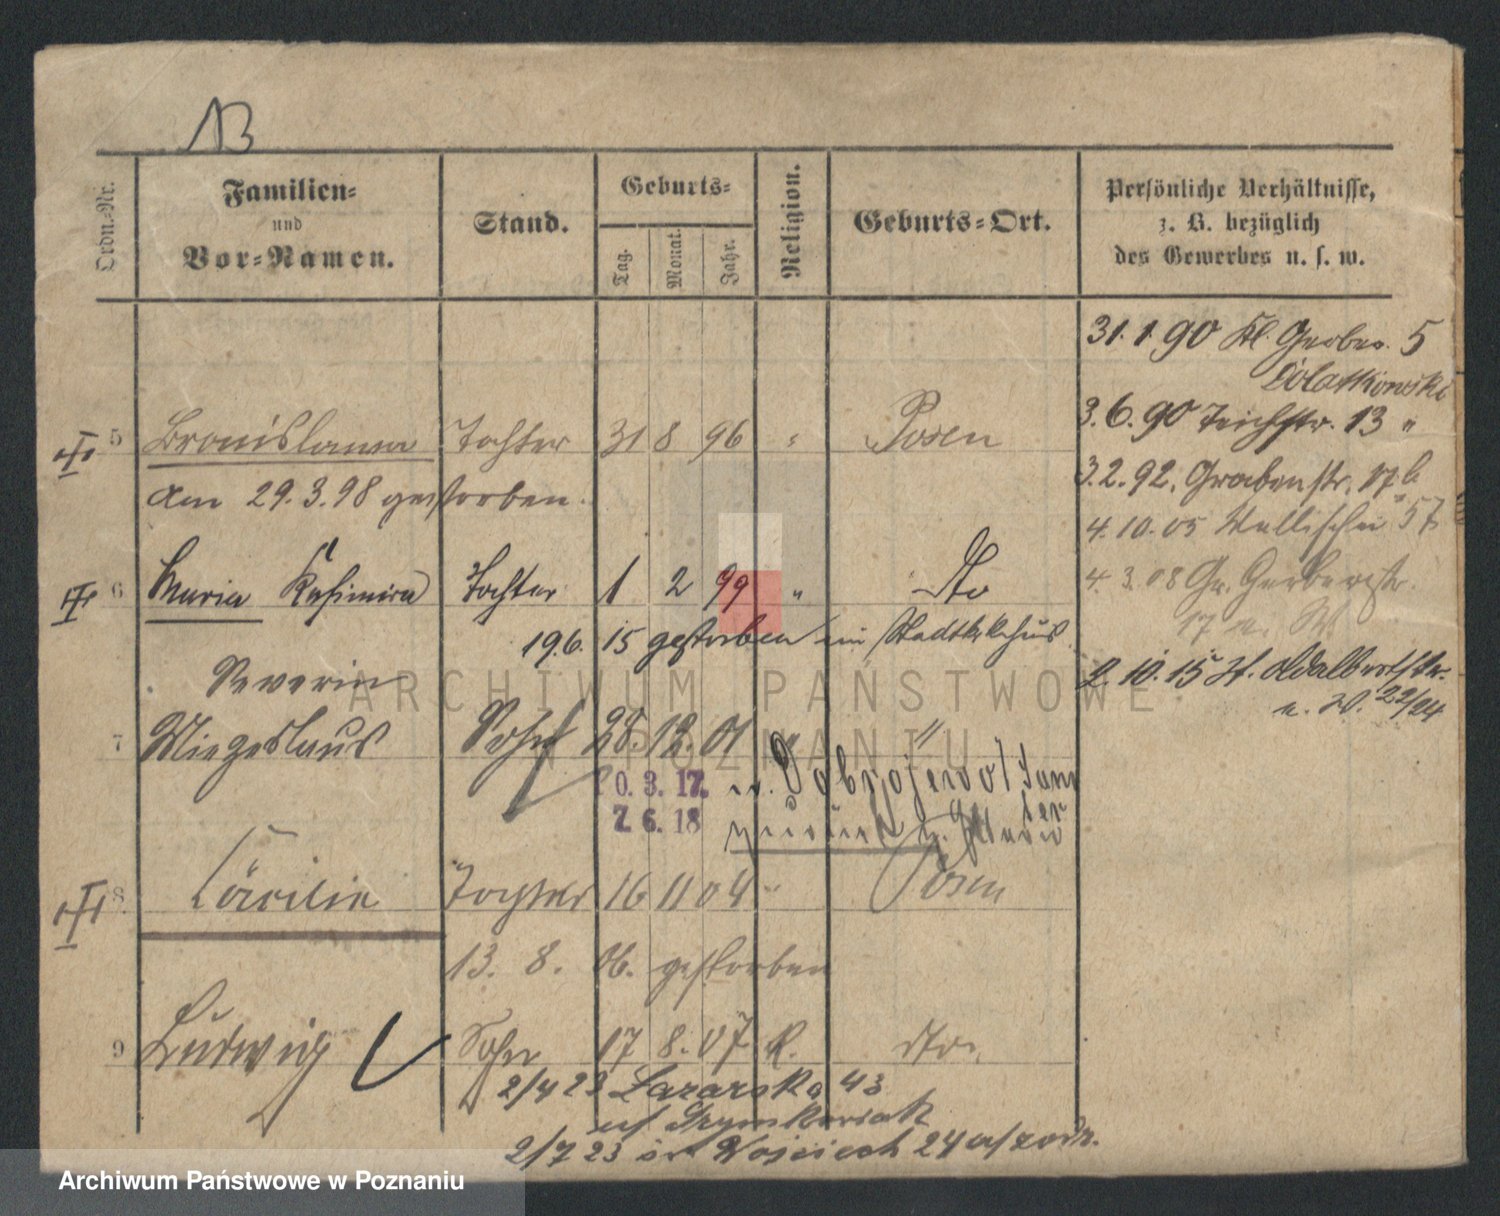 B
Ordn.-Nr.
Familien-
und
Vor-Namen.
Stand.
Geburts-
Tag.
Monat.
Jahr.
Religion.
Geburts-Ort.
Persönliche Verhältnisse,
z. B. bezüglich
des Gewerbes u. s. w.
31.1.90 Kl. Gerber. 5
3.6.90 Teichstr. 13 "
3.2.92. Grabenstr. 17b
4.10.05 Wallischei 57
4.3.08 Gr. Gerberstr.
17 n. W.
2.10.15 St. Adalbertstr.
n. W. 22/24
5 Bronislawa Tochter 31 8 96 " Posen
am 29.3.98 gestorben.
6 Maria Kasimira Tochter 1 2 99 " dto
19.6. 15 gestorben im Stadtkrkhus.
Severin
7 Miezeslaus Sohn 28. 12. 01 " "
20. 3. 17. n. Dobrojewo / Sam
ter
7. 6. 18 zurück
8 Cäcilie Tochter 16 11 04 " Posen
13. 8. 06. gestorben
9 Ludwig Sohn 17 8. 07 K. dto.
2/4 23 Lazarska 43
u/ Szymkowiak
2/7 23 św Wojciech 24 u/rodz.
Archiwum Państwowe w Poznaniu
ARCHIWUM PAŃSTWOWE
W POZNANIU